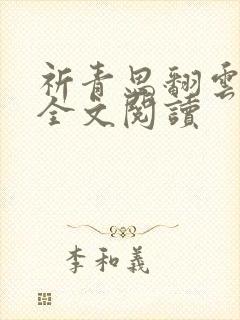 祈青思翻雲
全文閱讀
李和義